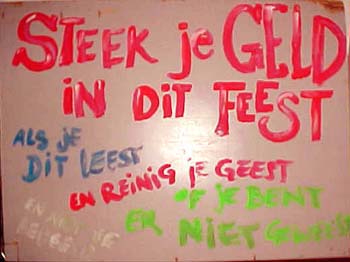 STEEK je GELD
IN DIT FEEST
ALS JE
DIT LEEST
EN REINIG JE GEEST
OF JE BENT
ER NIET GEWEEST
EN ALS JE